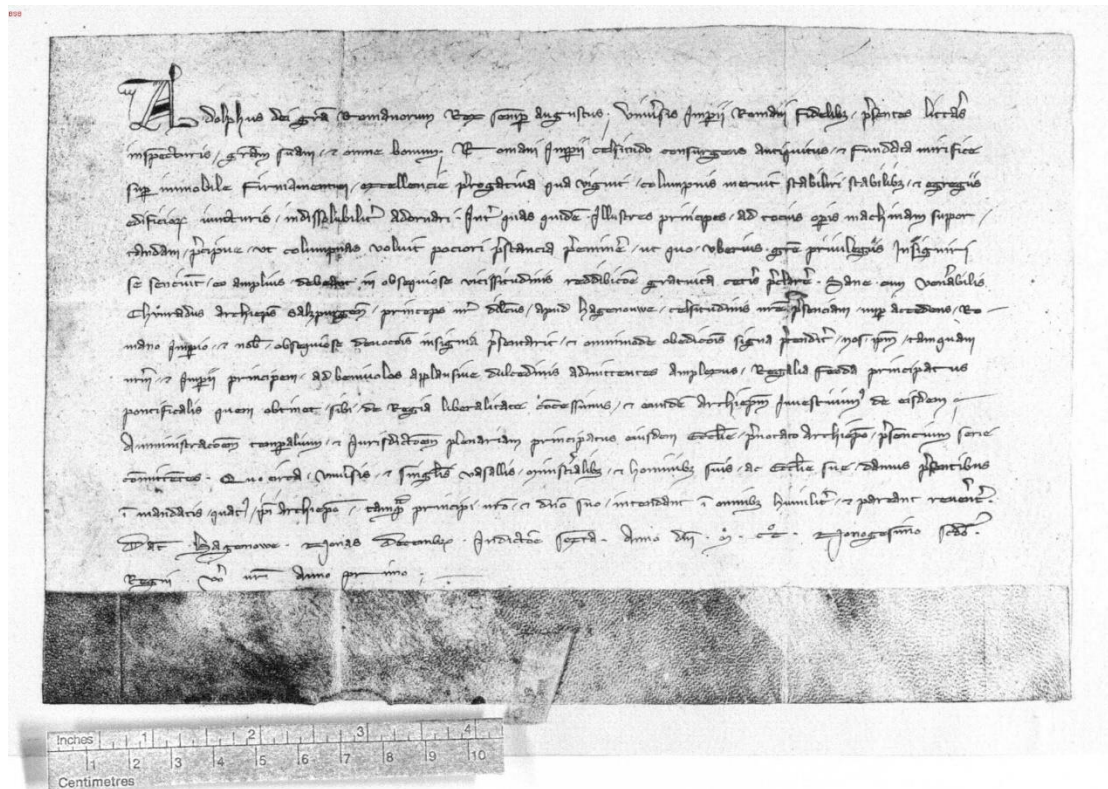 898
Adolphus dei gra Romanorum Rex semp augustus, Vniusis Impii Romani fidelibz, psentes litteras
inspecturis, gram suam, et omne bonum. Romani Impii celsitudo consurgens antiquitus, et fundata mirifice
sup immobile firmamentum, excellencie progatiua qua viguit, columpnis meruit stabiliri stabilibz, et egregiis
edificiorum iuncturis, indissolubilit adornari. Int quas quidem Illustres principes, ad tocius opis machinam supor
tandam, pcipue, ut columpnas voluit pociori pstancia preminere, ut quo uberius gre priuilegiis Insigniri
se senciunt, eo amplius debeant in obsequiose vicissitudinis reddibicoe gratuita ceteris pclarere. Sane cum venabilis
Chunradus archieps Salzpurgen, princeps nr dilcus, apud Hagenowe, celsitudinis nre psenciam nup accedens, Ro
mano Impio, et nob, obsequiose deuocois insignia psentarit, et omnimode obediecois signa ptendit, nos, ipm, tamquam
nrm et Impii principem, ad beniuolos applausiue dulcedinis admittentes amplexus, Regalia feoda principatus
pontificalis quem obtinet, sibi, de Regia liberalitate concessimus, et eundem archiepm Inuestiuimus de eisdem,
Amministracoem temporalium, et Iurisdictoem plenariam principatus eiusdem Ecclie, pnotato Archiepo, psencium serie
comittentes. Quo circa, vniusis, et singlis vasallis, ministialibz, et hominibz suis, ac Ecclie sue, damus psentibus
in mandatis, quatin, ipi archiepo, tamq principi nro, et dno suo, intendant in omnibz humilit, et pareant reuent.
Dat Hagenowe, Nonas Decembr. Indictoe Sexta. Anno dni. M. CC. Nonogesimo scdo.
Regni vero nri Anno primo.
Inches 1 2 3 4
1 2 3 4 5 6 7 8 9 10
Centimetres